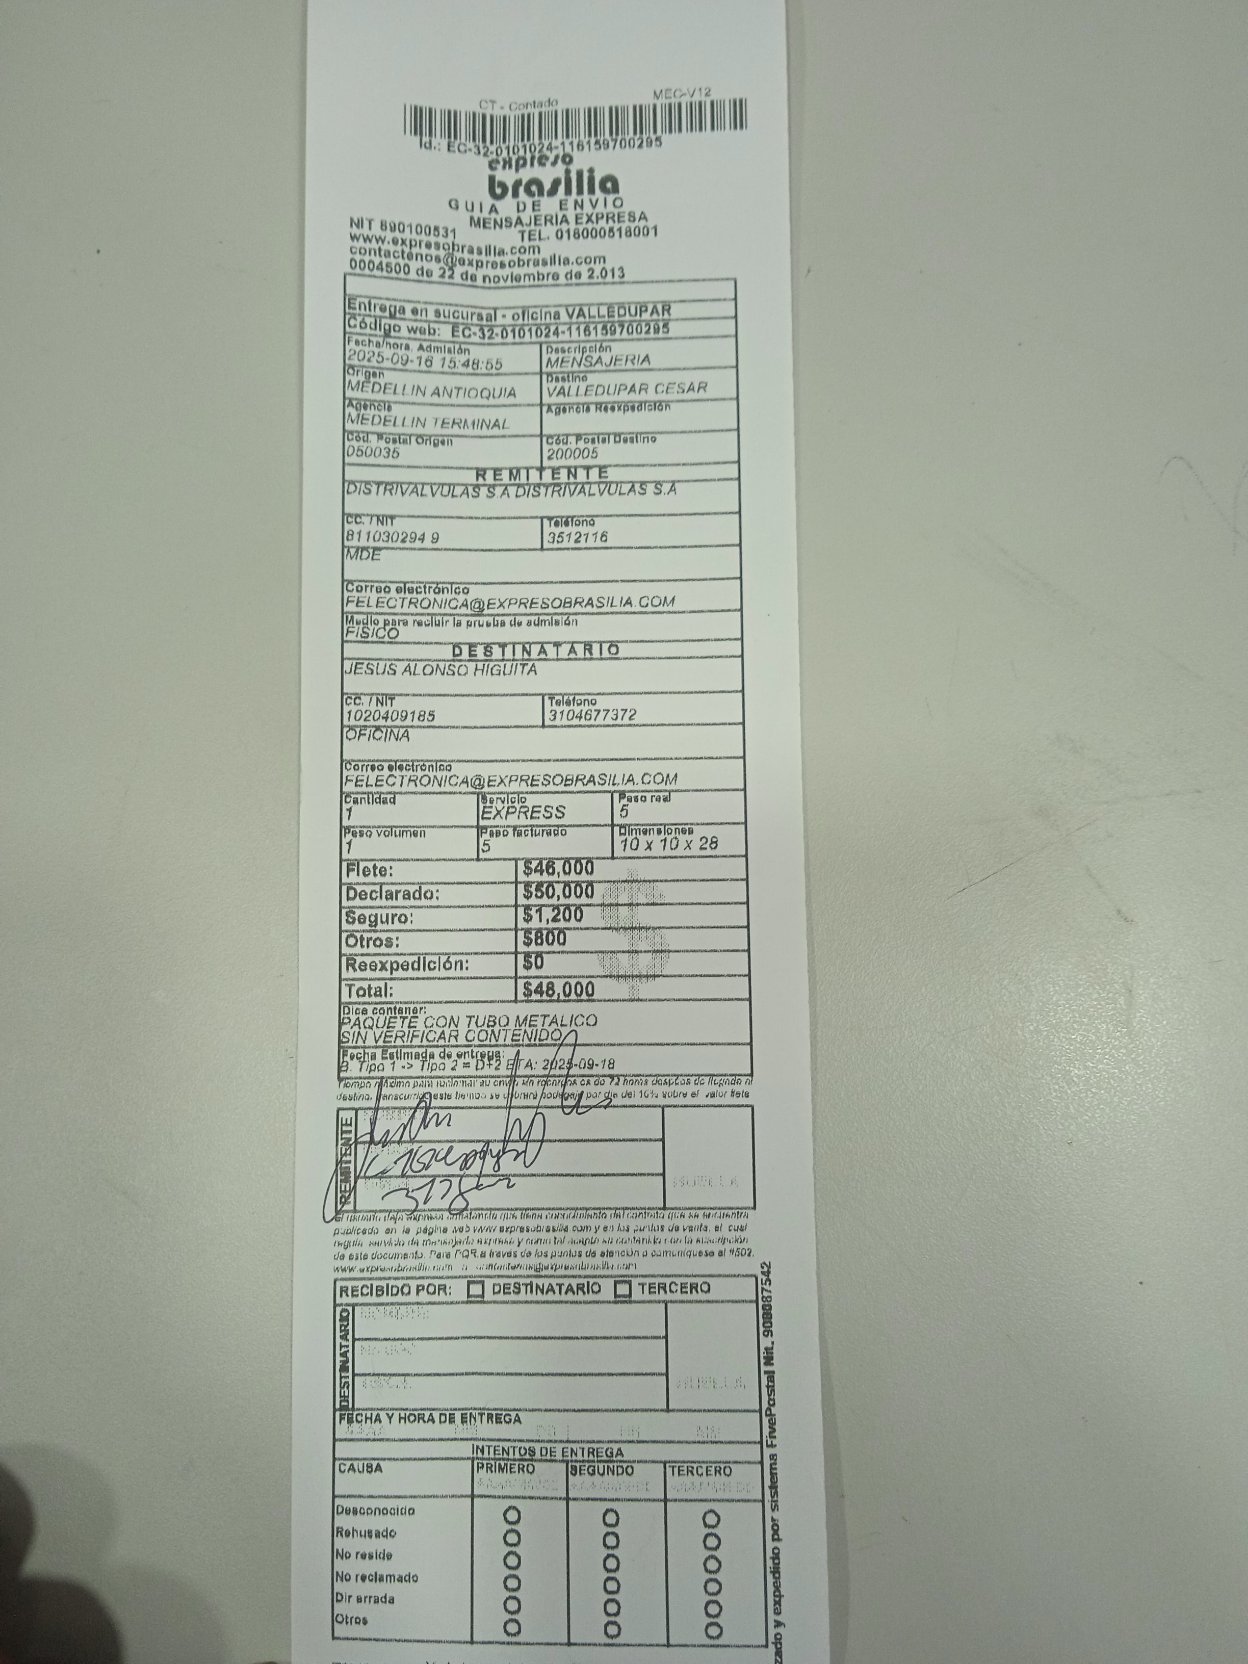 CT - Contado
MEC-V12
Id.: EC-32-0101024-116159700295
expreso
brasilia
GUIA DE ENVIO
MENSAJERIA EXPRESA
NIT 890100531
TEL. 018000518001
www.expresobrasilia.com
contactenos@expresobrasilia.com
0004500 de 22 de noviembre de 2.013
Entrega en sucursal - oficina VALLEDUPAR
Código web: EC-32-0101024-116159700295
Fecha/hora. Admisión Descripción
2025-09-16 15:48:55 MENSAJERIA
Origen Destino
MEDELLIN ANTIOQUIA VALLEDUPAR CESAR
Agencia Agencia Reexpedición
MEDELLIN TERMINAL
Cód. Postal Origen Cód. Postal Destino
050035 200005
REMITENTE
DISTRIVALVULAS S.A DISTRIVALVULAS S.A
CC. / NIT Teléfono
811030294 9 3512116
MDE
Correo electrónico
FELECTRONICA@EXPRESOBRASILIA.COM
Medio para recibir la prueba de admisión
FISICO
DESTINATARIO
JESUS ALONSO HIGUITA
CC. / NIT Teléfono
1020409185 3104677372
OFICINA
Correo electrónico
FELECTRONICA@EXPRESOBRASILIA.COM
Cantidad Servicio Peso real
1 EXPRESS 5
Peso volumen Peso facturado Dimensiones
1 5 10 x 10 x 28
Flete: $46,000
Declarado: $50,000
Seguro: $1,200
Otros: $800
Reexpedición: $0
Total: $48,000
Dice contener:
PAQUETE CON TUBO METALICO
SIN VERIFICAR CONTENIDO
Fecha Estimada de entrega:
B. Tipo 1 -> Tipo 2 = D+2 ETA: 2025-09-18
Tiempo máximo para reclamar su envío sin recargos es de 72 horas después de llegada al
destino, transcurrido este tiempo se cobrará bodegaje por día del 10% sobre el valor flete
REMITENTE
HUELLA
El usuario deja expresa constancia que tiene conocimiento del contrato que se encuentra
publicado en la página web www.expresobrasilia.com y en los puntos de venta, el cual
regula servicio de mensajería expresa y como tal acepta su contenido con la suscripción
de este documento. Para PQR a través de los puntos de atención o comuníquese al #502,
www.expresobrasilia.com o contactenos@expresobrasilia.com
RECIBIDO POR: DESTINATARIO TERCERO
DESTINATARIO
HUELLA
FECHA Y HORA DE ENTREGA
HH MM
INTENTOS DE ENTREGA
CAUSA PRIMERO SEGUNDO TERCERO
Desconocido
Rehusado
No reside
No reclamado
Dir errada
Otros
zado y expedido por sistema FivePostal Nit. 900087542